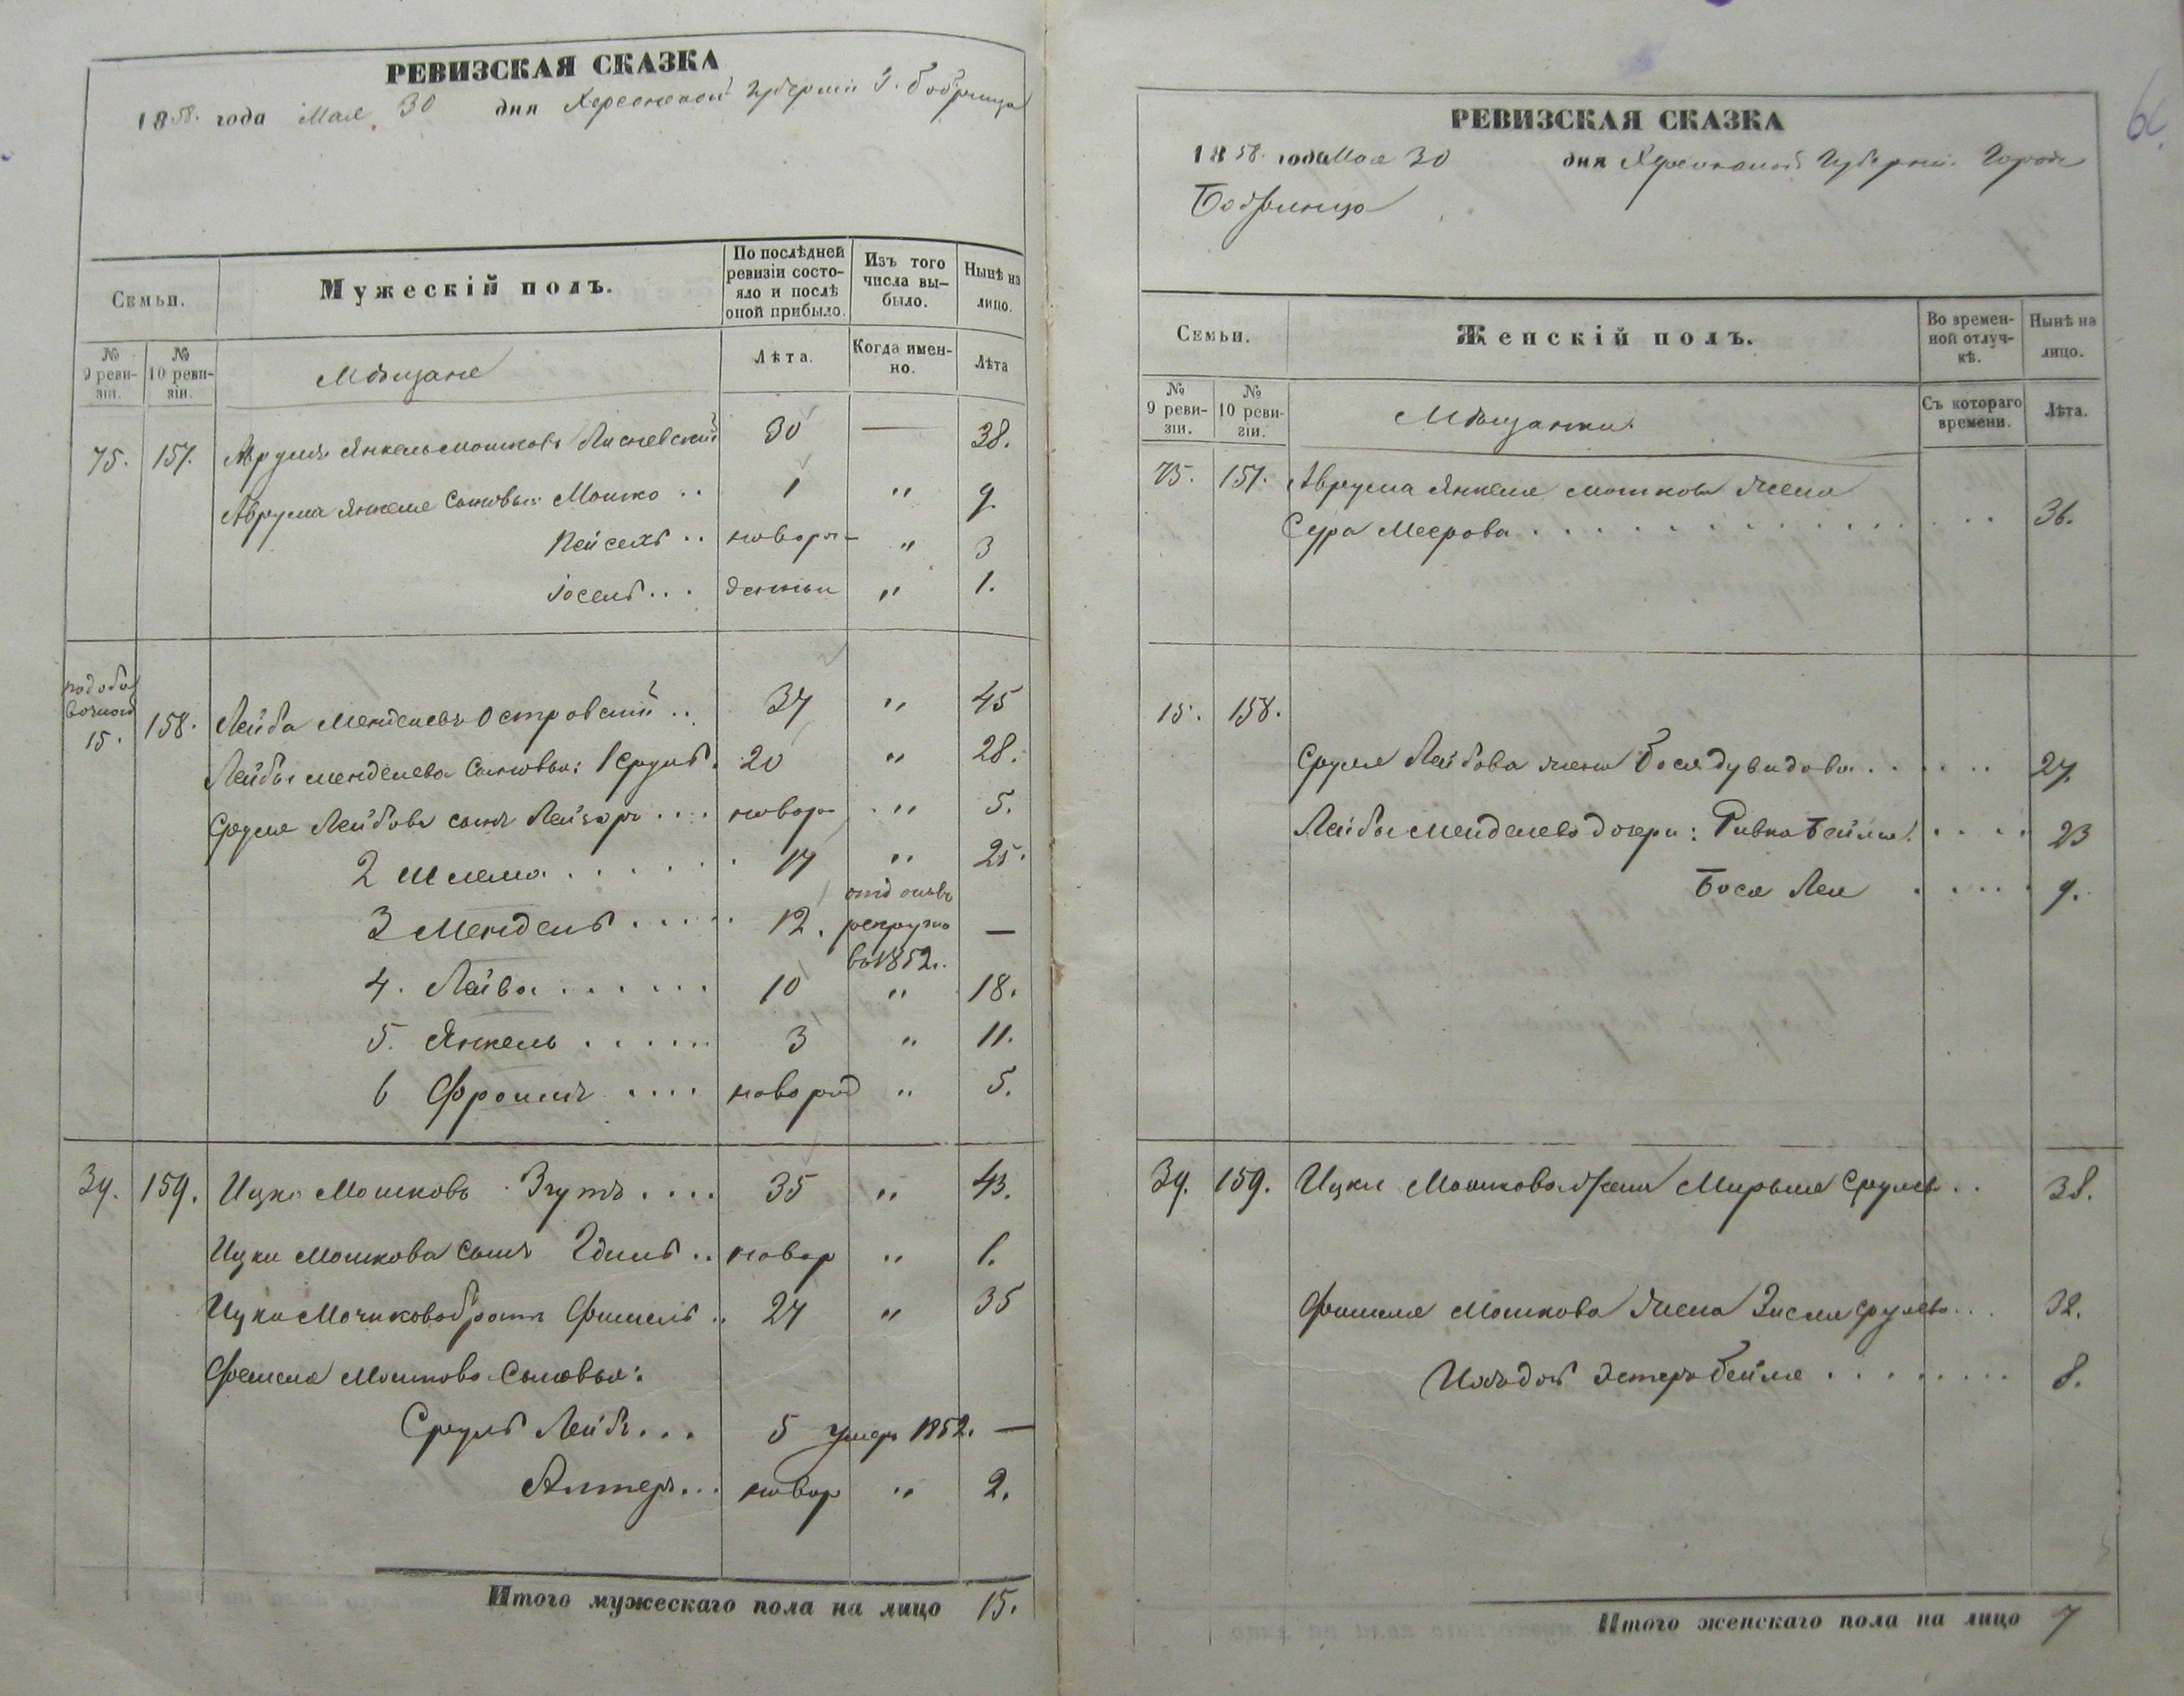 РЕВИЗСКАЯ СКАЗКА
1858. года Мая 30 дня Херсонской Губерніи Г. Бобринца
Семьи.
Мужескій полъ.
По послѣдней ревизіи состо-
яло и послѣ
оной прибыло.
Изъ того
числа вы-
было.
Нынѣ на
лицо.
№ 9 реви-
зіи.
№ 10 реви-
зіи.
Мѣщане
Лѣта.
Когда имен-
но.
Лѣта
75. 157. Аврумъ Янкель Мошковъ 30 — 38.
Аврума Янкеля Сыновья: Мошко .. 1 " 9.
Пейсехъ .. новорж- " 3
Іосель ... денныи " 1.
15. 158. Лейба Менделевъ Островскій .. 37 " 45
Лейбы Менделева Сыновья: 1 Сруль . 20 " 28.
Сруля Лейбова сынъ Лейзоръ .... новор " 5.
2 Шлема ...... 17 " 25.
3 Мендель ..... 12. отд въ рекруты
въ 1852. —
4. Лейва ...... 10 " 18.
5. Янкель ...... 3 " 11.
6 Фроимъ .... новород " 5.
39. 159. Ицко Мошковъ .... 35 " 43.
Ицки Мошкова Сынъ Эдиль .. новор " 1.
Ицки Мошкова братъ Фишель .. 27 " 35
Фишеля Мошкова Сыновья:
Сруль Лейбъ ... 5 умеръ 1852. —
Алтеръ ... новор " 2.
Итого мужескаго пола на лицо 15.
РЕВИЗСКАЯ СКАЗКА
1858. года Мая 30 дня Херсонской Губерніи Города
Бобринца
Семьи.
Женскій полъ.
Во времен-
ной отлуч-
кѣ.
Нынѣ на
лицо.
№ 9 реви-
зіи.
№ 10 реви-
зіи.
Мѣщанки
Съ котораго
времени.
Лѣта.
75. 157. Аврума Янкеля Мошкова жена
Сура Меерова ... 36.
15. 158.
Сруля Лейбова жена Бося Дувидова ... 27.
Лейбы Менделева дочери: Ривка Бейла .... 23
Бося Лея ..... 9.
39. 159. Ицки Мошкова жена Мирьма Срулева .. 38.
Фишеля Мошкова жена Зисля Срулева ... 32.
Ихъ дочь Эстеръ Бейла ........ 8.
Итого женскаго пола на лицо 7